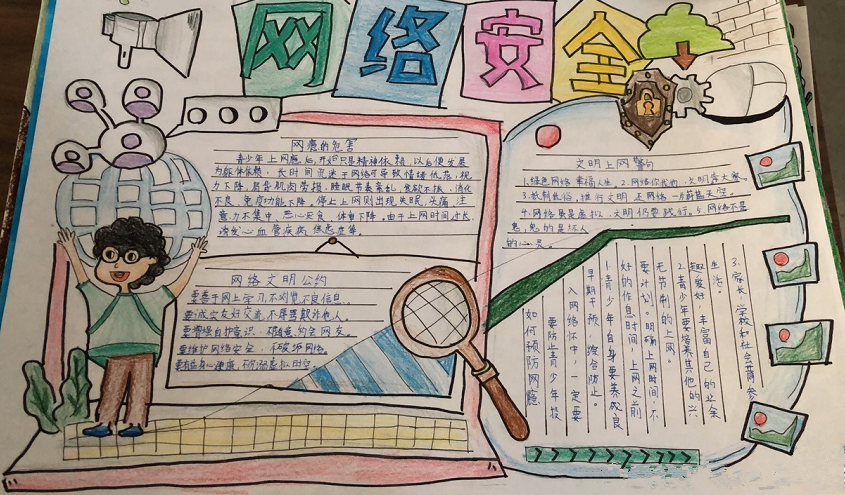 网络安全
网瘾的危害
青少年上网瘾后,开始只是精神依赖,以后便发展
为躯体依赖,长时间沉迷于网络可导致情绪低落,视
力下降,肩背肌肉劳损,睡眠节奏紊乱,食欲不振,消化
不良,免疫功能下降。停止上网则出现失眠,头痛,注
意力不集中,恶心厌食,体重下降。由于上网时间过长
诱发心血管疾病 焦虑症等。
网络文明公约
要善于网上学习,不浏览不良信息。
要诚实友好交流,不辱骂欺诈他人。
要增强自护意识,不随意约会网友。
要维护网络安全,不破坏网络。
要有益身心健康,不沉溺虚拟时空。
文明上网警句
1.绿色网络 幸福人生。2.网络你我他,文明靠大家。
4.网络虽是虚拟,文明仍要践行。5.网络不是
鬼,鬼的是坏人
的心灵。
3.家长 学校和社会前参
生活。
趣爱好 丰富自己的业余
2.青少年要培养其他的兴
无节制的上网。
要计划。明确上网时间,不
好的作息时间,上网之前
1.青少年自身要养成良
早期干预,综合防止。
入网络怀中,一定要
要防止青少年投
如何预防网瘾